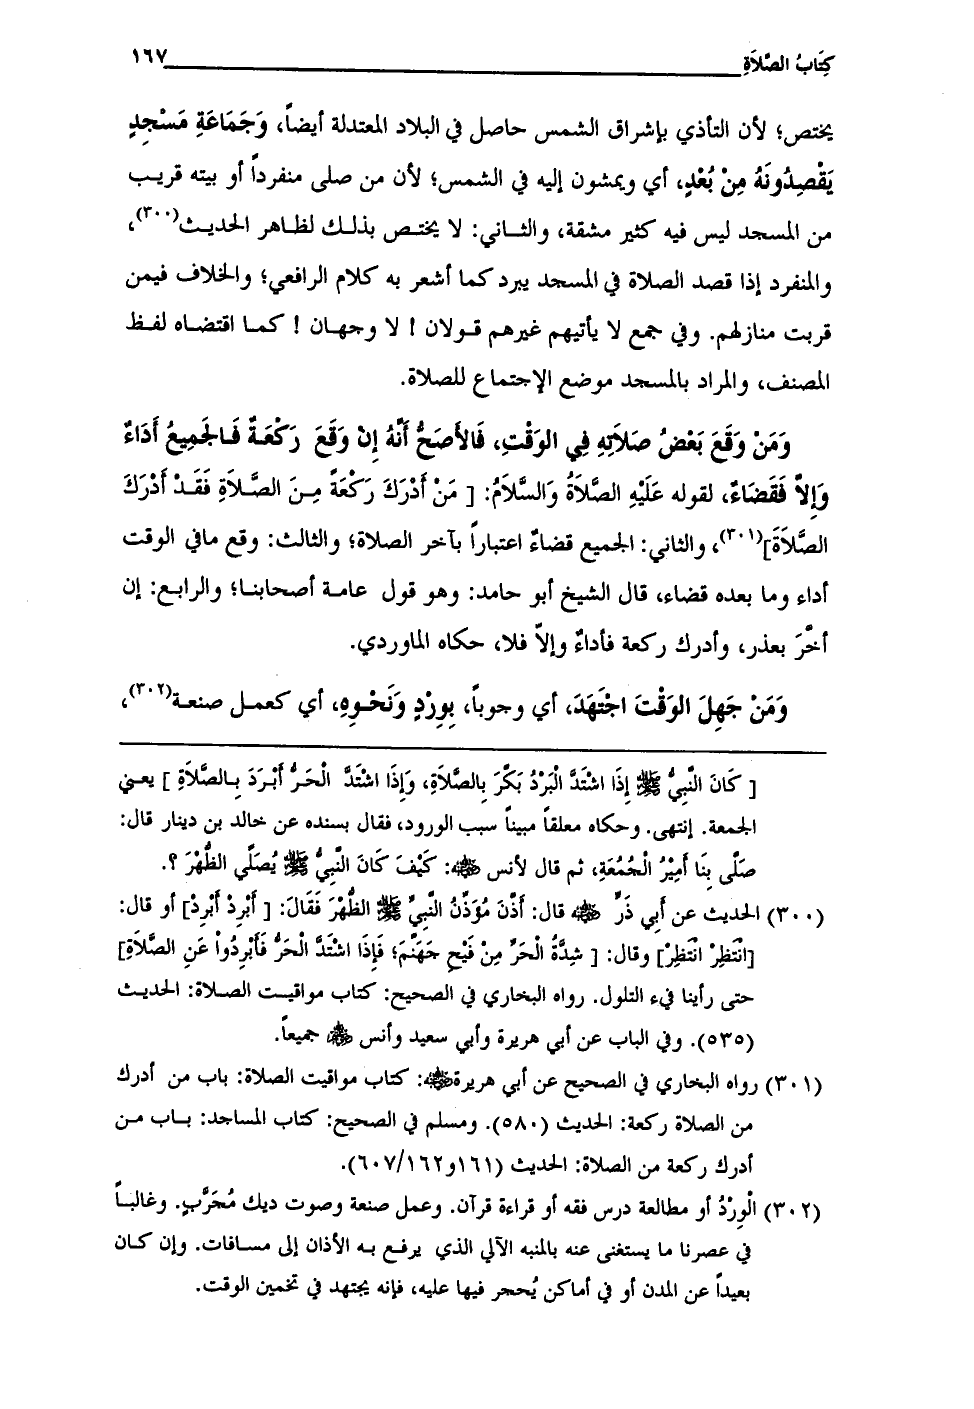 كِتَابُ الصَّلَاةِ ١٦٧
يختص؛ لأن التأذي بإشراق الشمس حاصل في البلاد المعتدلة أيضاً، وَجَمَاعَةِ مَسْجِدٍ
يَقْصِدُونَهُ مِنْ بُعْدٍ، أي ويمشون إليه في الشمس؛ لأن من صلى منفرداً أو بيته قريب
من المسجد ليس فيه كثير مشقة، والثاني: لا يختص بذلك لظاهر الحديث(٣٠٠)،
والمنفرد إذا قصد الصلاة في المسجد يبرد كما أشعر به كلام الرافعي؛ والخلاف فيمن
قربت منازلهم. وفي جمع لا يأتيهم غيرهم قولان ! لا وجهان ! كما اقتضاه لفظ
المصنف، والمراد بالمسجد موضع الإجتماع للصلاة.
وَمَنْ وَقَعَ بَعْضُ صَلَاتِهِ فِي الوَقْتِ، فَالأَصَحُّ أَنَّهُ إِنْ وَقَعَ رَكْعَةٌ فَالجَمِيعُ أَدَاءٌ
وَإِلاَّ فَقَضَاءٌ، لقوله عَلَيْهِ الصَّلَاةُ وَالسَّلَامُ: [ مَنْ أَدْرَكَ رَكْعَةً مِنَ الصَّلَاةِ فَقَدْ أَدْرَكَ
الصَّلَاةَ](٣٠١)، والثاني: الجميع قضاءٌ اعتباراً بآخر الصلاة؛ والثالث: وقع مافي الوقت
أداء وما بعده قضاء، قال الشيخ أبو حامد: وهو قول عامة أصحابنا؛ والرابع: إن
أخَّرَ بعذر، وأدرك ركعة فأداءٌ وإلاّ فلا، حكاه الماوردي.
وَمَنْ جَهِلَ الوَقْتَ اجْتَهَدَ، أي وجوباً، بِوِرْدٍ وَنَحْوِهِ، أي كعمل صنعة(٣٠٢)،
[ كَانَ النَّبِيُّ ﷺ إِذَا اشْتَدَّ الْبَرْدُ بَكَّرَ بِالصَّلَاةِ، وَإِذَا اشْتَدَّ الْحَرُّ أَبْرَدَ بِالصَّلَاةِ ] يعني
الجمعة. إنتهى. وحكاه معلقاً مبيناً سبب الورود، فقال بسنده عن خالد بن دينار قال:
صَلَّى بِنَا أَمِيْرُ الْجُمُعَةِ، ثم قال لأنس ﷺ: كَيْفَ كَانَ النَّبِيُّ ﷺ يُصَلِّي الظُّهْرَ ؟.
(٣٠٠) الحديث عن أبي ذَرٍّ ﷺ قال: أَذَّنَ مُؤَذِّنُ النَّبِيِّ ﷺ الظُّهْرَ فَقَالَ: [ أَبْرِدْ أَبْرِدْ] أو قال:
[انْتَظِرْ انْتَظِرْ] وقال: [ شِدَّةُ الْحَرِّ مِنْ فَيْحِ جَهَنَّمَ؛ فَإِذَا اشْتَدَّ الْحَرُّ فَأَبْرِدُواْ عَنِ الصَّلَاةِ]
حتى رأينا فيء التلول. رواه البخاري في الصحيح: كتاب مواقيت الصلاة: الحديث
(٥٣٥). وفي الباب عن أبي هريرة وأبي سعيد وأنس ﷺ جميعاً.
(٣٠١) رواه البخاري في الصحيح عن أبي هريرة ﷺ: كتاب مواقيت الصلاة: باب من أدرك
من الصلاة ركعة: الحديث (٥٨٠). ومسلم في الصحيح: كتاب المساجد: باب من
أدرك ركعة من الصلاة: الحديث (١٦١و٦٠٧/١٦٢).
(٣٠٢) الْوِرْدُ أو مطالعة درس فقه أو قراءة قرآن. وعمل صنعة وصوت ديك مُجَرَّبٍ. وغالباً
في عصرنا ما يستغنى عنه بالمنبه الآلي الذي يرفع به الأذان إلى مسافات. وإن كان
بعيداً عن المدن أو في أماكن يُحجر فيها عليه، فإنه يجتهد في تخمين الوقت.